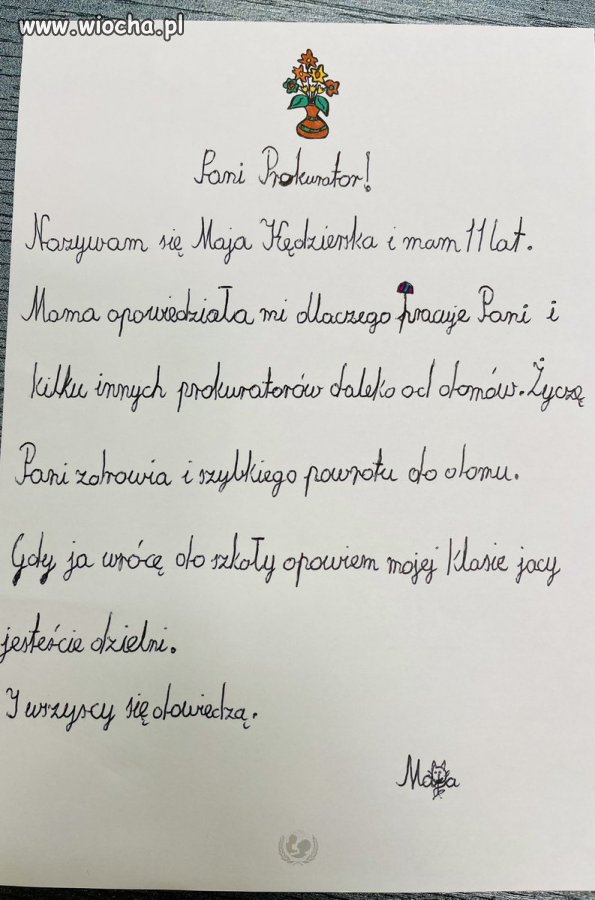 www.wiocha.pl
Pani Prokurator!
Nazywam się Maja Kędzierska i mam 11 lat.
Mama opowiedziała mi dlaczego pracuje Pani i
kilku innych prokuratorów daleko od domów. Życzę
Pani zdrowia i szybkiego powrotu do domu.
Gdy ja wrócę do szkoły opowiem mojej klasie jacy
jesteście dzielni.
I wszyscy się dowiedzą.
Maja